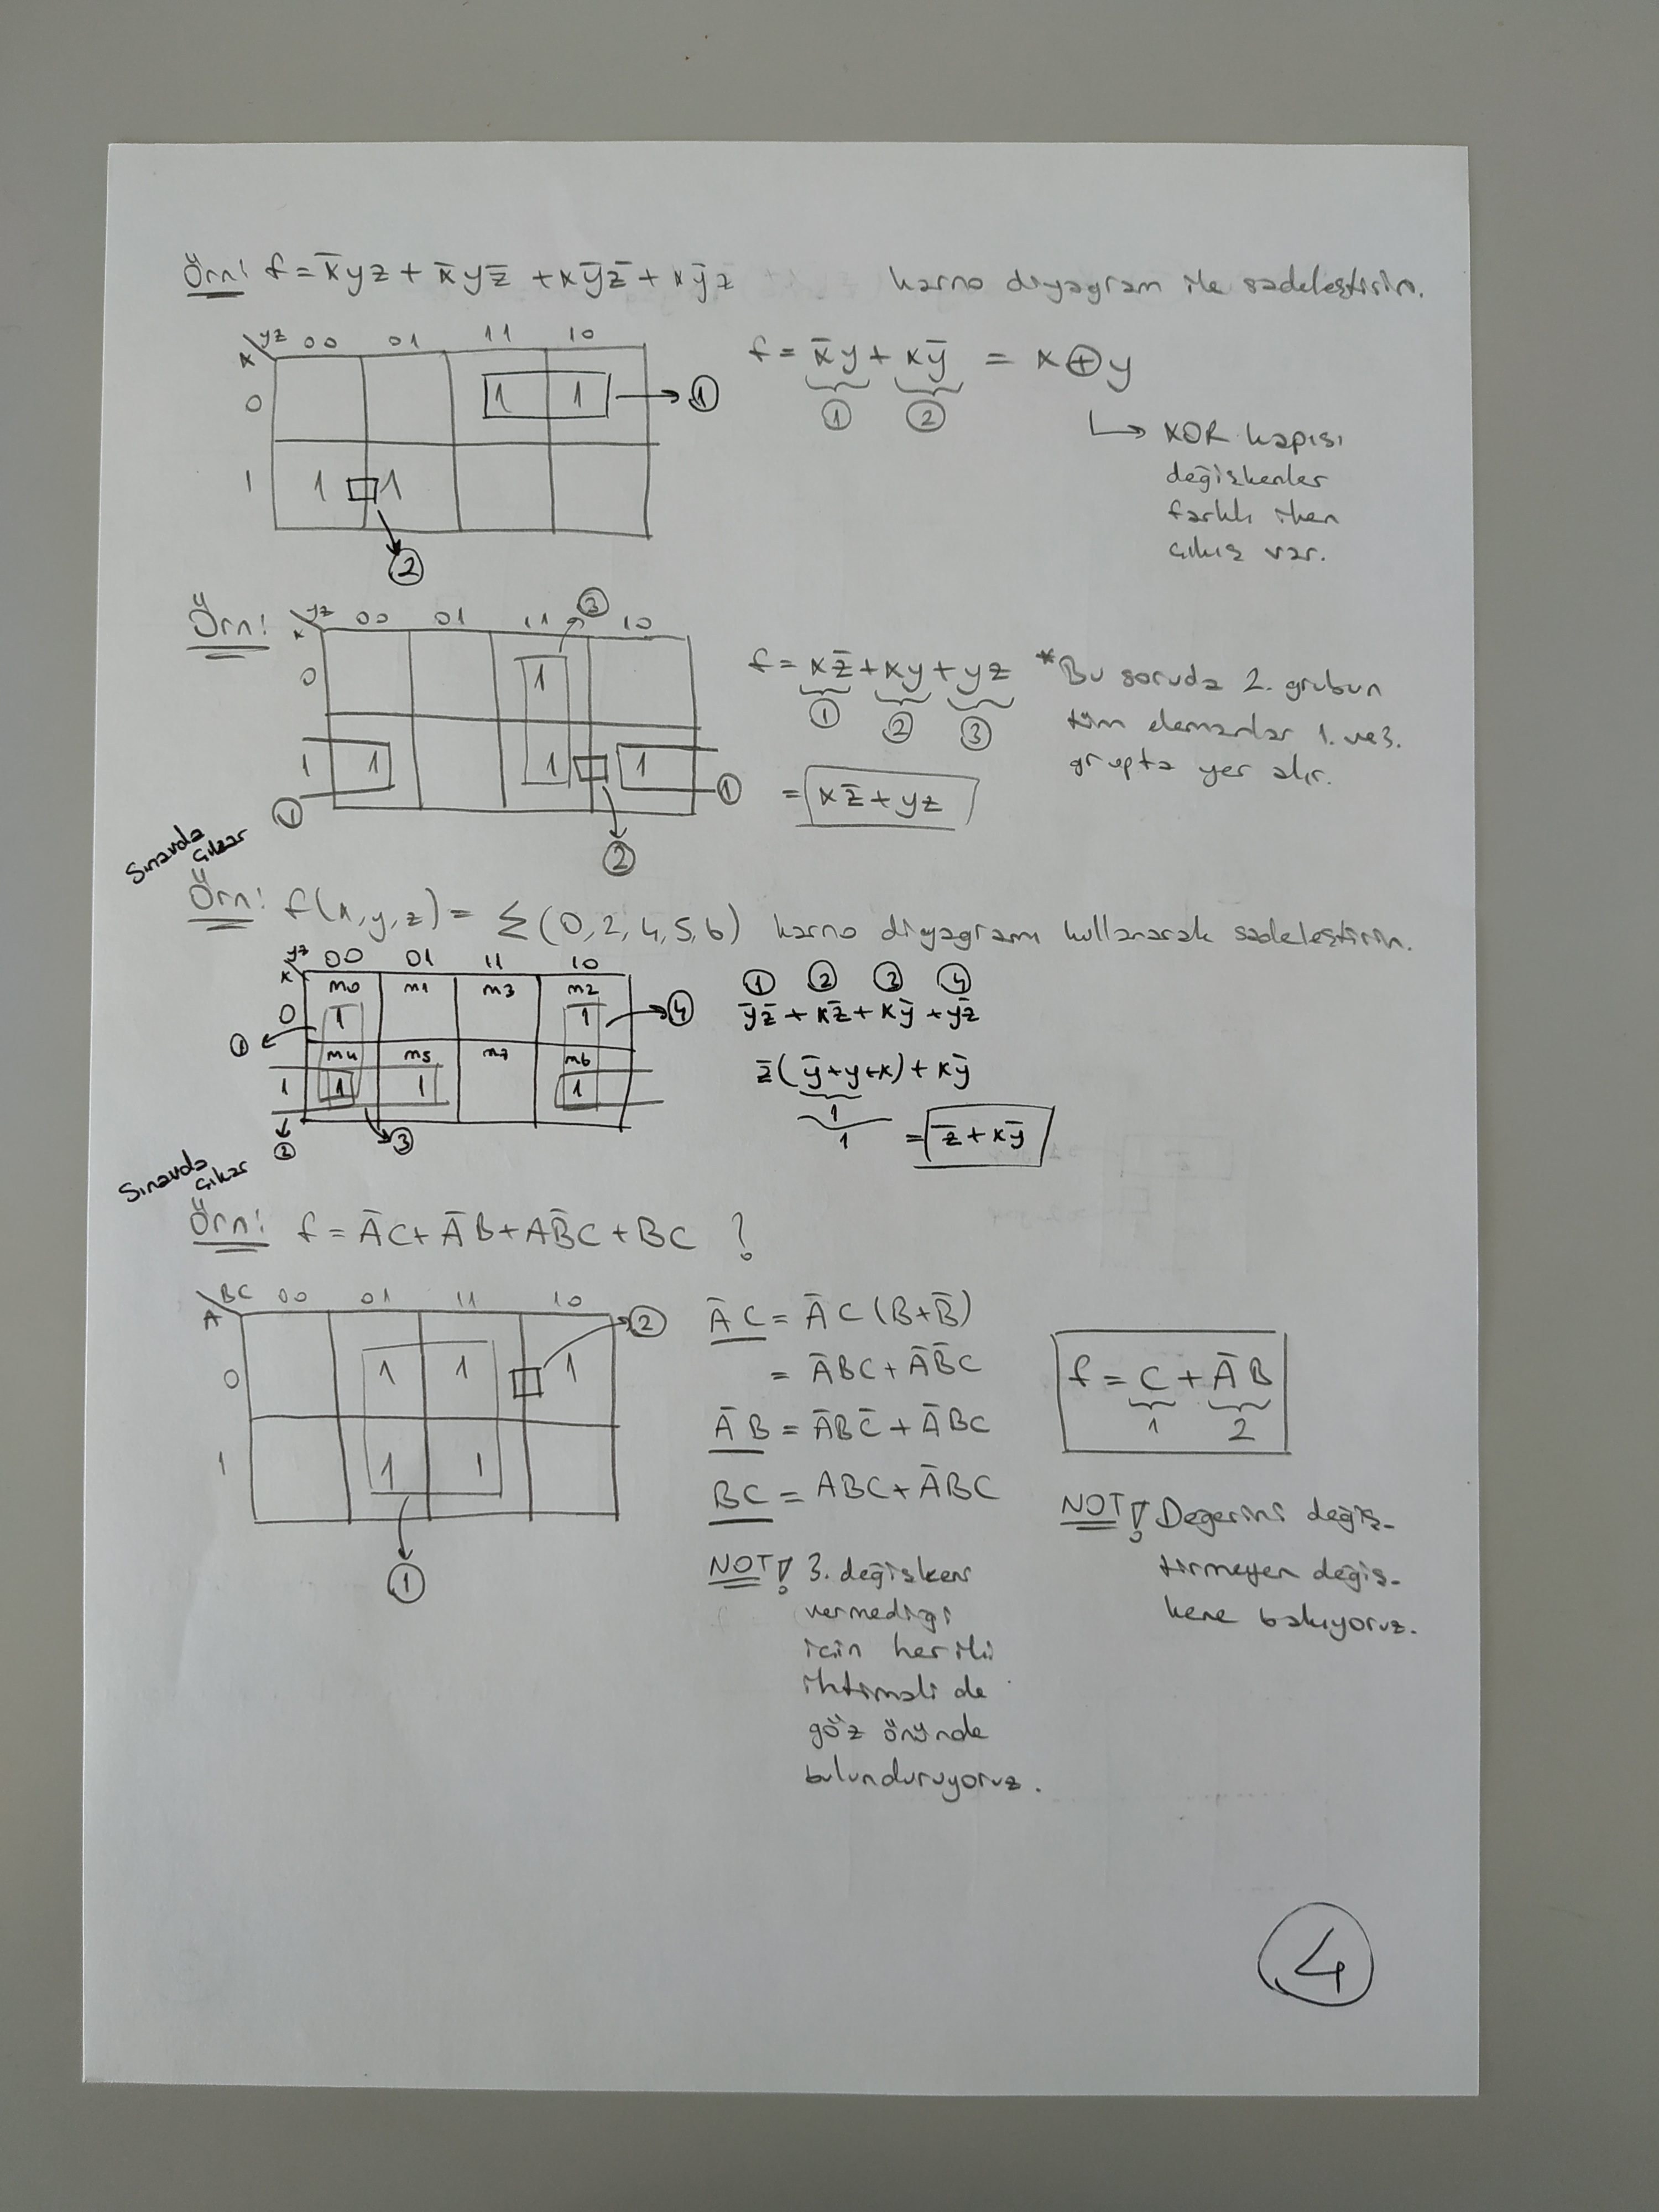 Örn! f = x̄yz + x̄yz̄ + xȳz̄ + xȳz karno diyagram ile sadeleştirin.
x\yz 00 01 11 10
0 1 1 → ①
1 1 1
②
f = x̄y + xȳ = x⊕y
① ②
↳ XOR kapısı
değişkenler
farklı iken
çıkış var.
Örn!
x\yz 00 01 11 10
0 1 → ③
1 1 1 1
① ② ①
f = xz̄ + xy + yz
① ② ③
= xz̄ + yz
*Bu soruda 2. grubun
tüm elemanları 1. ve 3.
grupta yer alır.
Sınavda
çıkar
Örn! f(x,y,z) = Σ(0,2,4,5,6) karno diyagram kullanarak sadeleştirin.
x\yz 00 01 11 10
0 m0 1 m1 m3 m2 1
1 m4 1 m5 1 m7 m6 1
① ② ③ ④
① ② ③ ④
ȳz̄ + xz̄ + xȳ + yz̄
z̄(ȳ+y+x) + xȳ
1
1
= z̄ + xȳ
Sınavda
çıkar
Örn! f = ĀC + ĀB + AB̄C + BC ?
A\BC 00 01 11 10
0 1 1 1
1 1 1
① ②
ĀC = ĀC(B+B̄)
= ĀBC + ĀB̄C
ĀB = ĀBC̄ + ĀBC
BC = ABC + ĀBC
NOT! 3. değişken
vermediği
için her iki
ihtimali de
göz önünde
bulunduruyoruz.
f = C + ĀB
1 2
NOT! Değerini değiş-
tirmeyen değiş-
kene bakıyoruz.
4